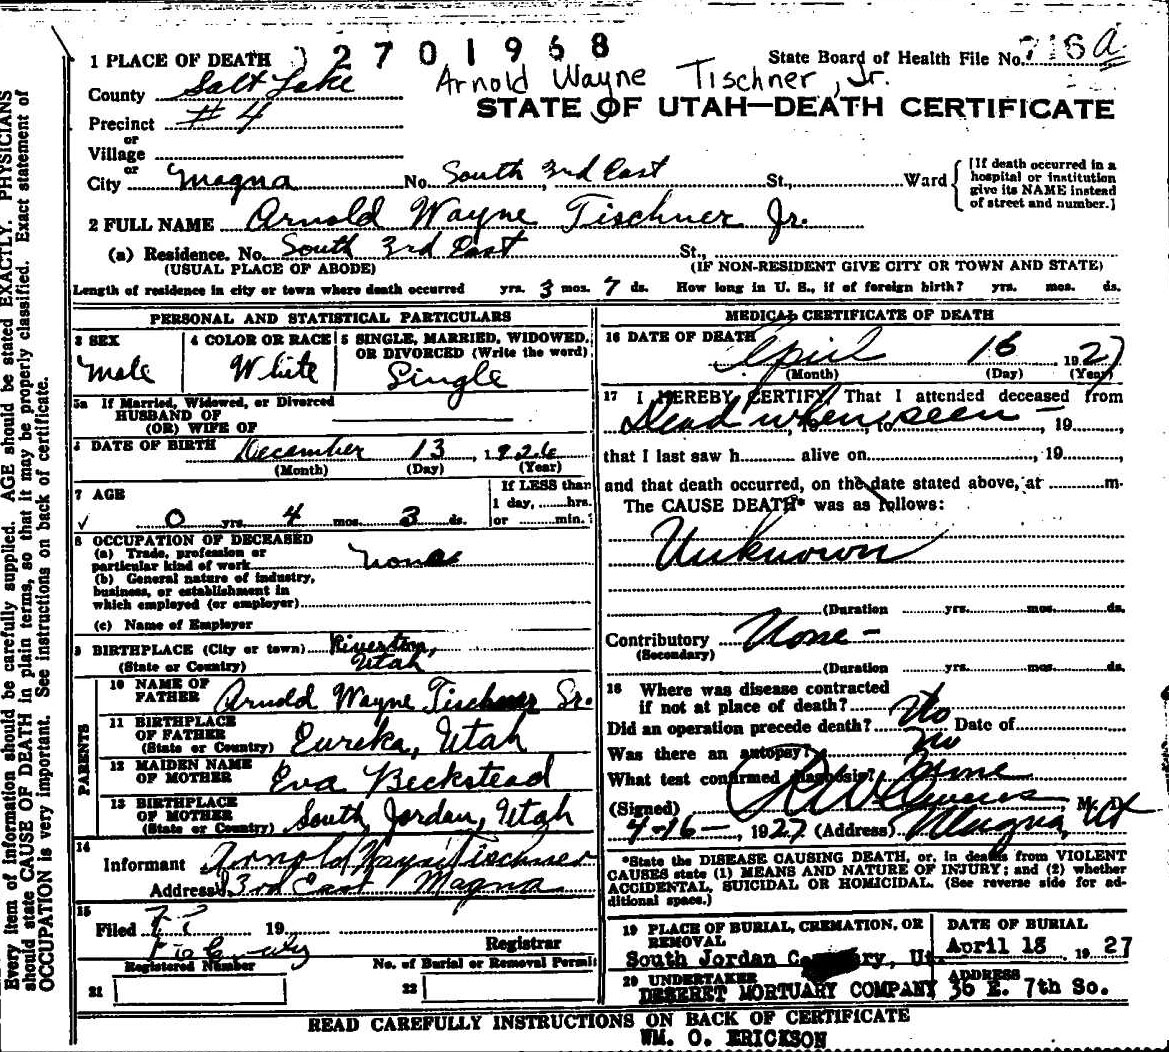 1 PLACE OF DEATH 2701968 State Board of Health File No. 716 a
County Salt Lake Arnold Wayne Tischner, Jr.
Precinct #4 STATE OF UTAH—DEATH CERTIFICATE
or
Village
or
City Magna No. South 3rd East St., Ward [If death occurred in a hospital or institution give its NAME instead of street and number.]
2 FULL NAME Arnold Wayne Tischner Jr.
(a) Residence. No. South 3rd East St.,
(USUAL PLACE OF ABODE) (IF NON-RESIDENT GIVE CITY OR TOWN AND STATE)
Length of residence in city or town where death occurred yrs. 3 mos. 7 ds. How long in U. S., if of foreign birth? yrs. mos. ds.
PERSONAL AND STATISTICAL PARTICULARS
3 SEX
Male
4 COLOR OR RACE
White
5 SINGLE, MARRIED, WIDOWED,
OR DIVORCED (Write the word)
Single
5a If Married, Widowed, or Divorced
HUSBAND OF
(OR) WIFE OF
DATE OF BIRTH December 13, 1926
(Month) (Day) (Year)
7 AGE
0 yrs. 4 mos. 3 ds.
If LESS than
1 day, hrs.
or min.
8 OCCUPATION OF DECEASED
(a) Trade, profession or
particular kind of work None
(b) General nature of industry,
business, or establishment in
which employed (or employer)
(c) Name of Employer
9 BIRTHPLACE (City or town) Riverton,
(State or Country) Utah
PARENTS
10 NAME OF
FATHER Arnold Wayne Tischner Sr.
11 BIRTHPLACE
OF FATHER
(State or Country) Eureka, Utah
12 MAIDEN NAME
OF MOTHER Eva Beckstead
13 BIRTHPLACE
OF MOTHER
(State or Country) South Jordan, Utah
14
Informant Arnold Wayne Tischner
Address 3rd East Magna
15
Filed 19
Registrar
Registered Number No. of Burial or Removal Permit
21 22
MEDICAL CERTIFICATE OF DEATH
16 DATE OF DEATH April 16 1927
(Month) (Day) (Year)
17 I HEREBY CERTIFY, That I attended deceased from
Dead when seen - , 19
that I last saw h alive on , 19
and that death occurred, on the date stated above, at m.
The CAUSE DEATH* was as follows:
Unknown
(Duration yrs. mos. ds.
Contributory None -
(Secondary)
(Duration yrs. mos. ds.
18 Where was disease contracted
if not at place of death?
Did an operation precede death? No Date of
Was there an autopsy? No
What test confirmed diagnosis? None
(Signed) M. D.
4-16-, 1927 (Address) Magna, Ut
*State the DISEASE CAUSING DEATH, or, in deaths from VIOLENT
CAUSES state (1) MEANS AND NATURE OF INJURY; and (2) whether
ACCIDENTAL, SUICIDAL OR HOMICIDAL. (See reverse side for ad-
ditional space.)
19 PLACE OF BURIAL, CREMATION, OR
REMOVAL
South Jordan Ut.
DATE OF BURIAL
April 18 1927
20 UNDERTAKER
DESERET MORTUARY COMPANY
ADDRESS
36 E. 7th So.
READ CAREFULLY INSTRUCTIONS ON BACK OF CERTIFICATE
WM. O. ERICKSON
Every item of information should be carefully supplied. AGE should be stated EXACTLY. PHYSICIANS
should state CAUSE OF DEATH in plain terms, so that it may be properly classified. Exact statement of
OCCUPATION is very important. See instructions on back of certificate.